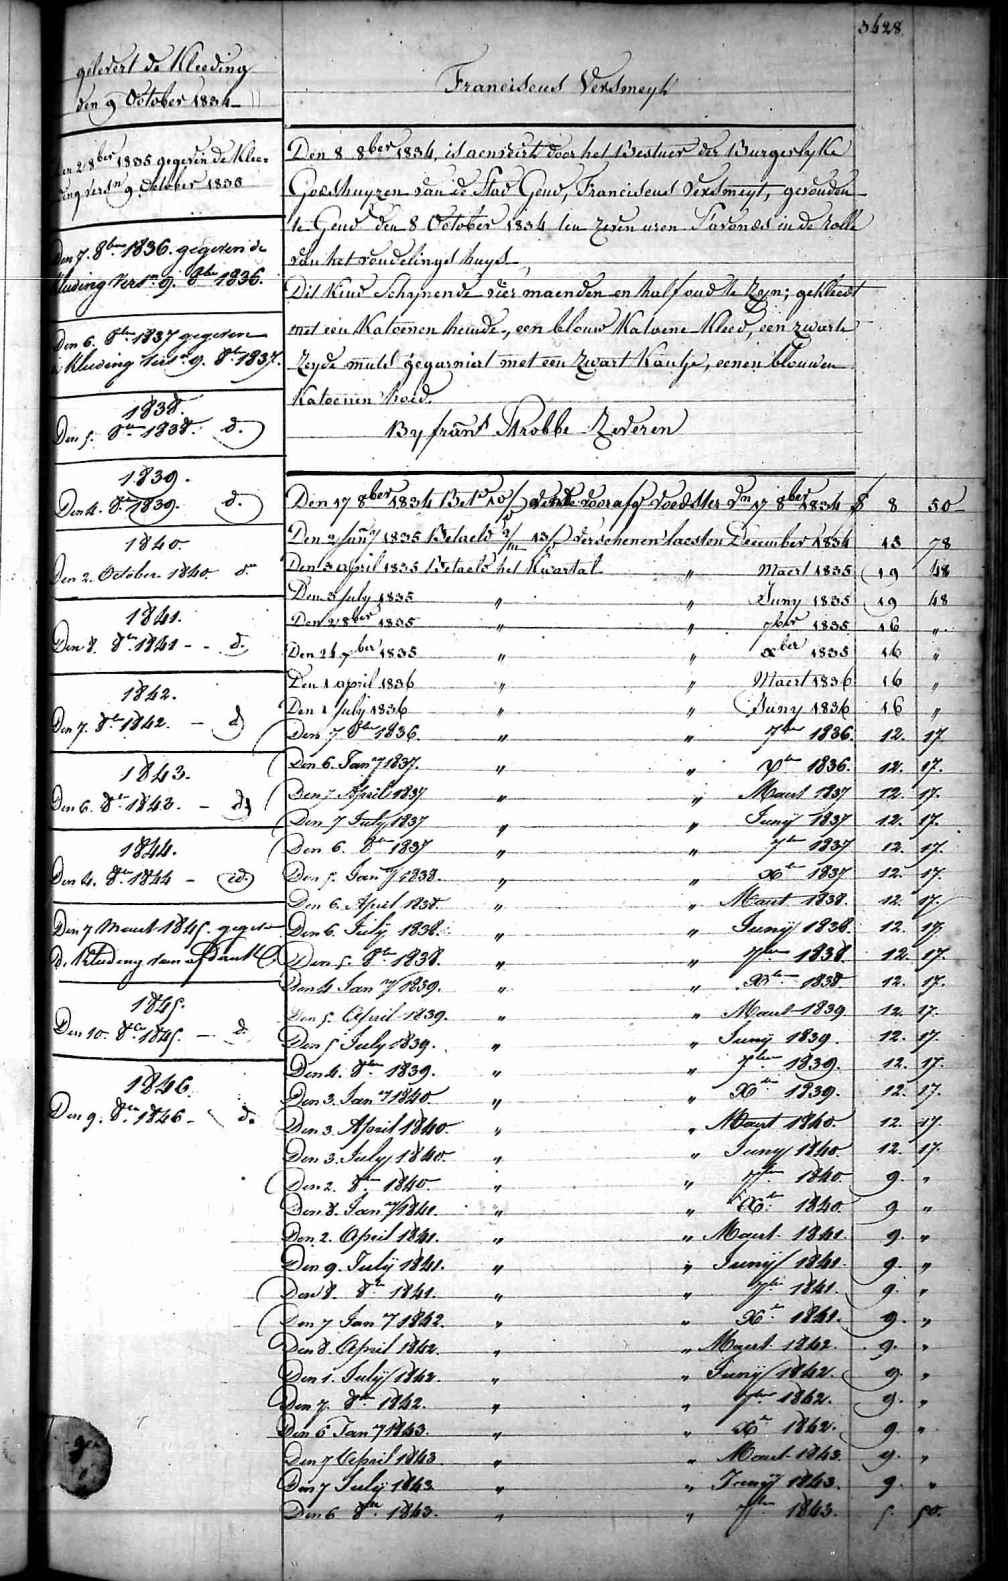 3428
gelevert de Kleeding
den 9 October 1834
Franciscus Versmeyt
Den 8 8ber 1834, is aenveirt door het Bestuer der Burgerlyke
Godshuyzen van de Stad Gend, Franciscus Versmeyt, gevonden
te Gend den 8 October 1834 ten zeven uren S'avonds in de Rolle
van het vondelingshuys
Dit Kind Schynende vier maenden en half oud te Zyn; gekleedt
met een Katoenen hemde, een blouw Katoene Kleed, een zwarte
Zyde muts gegarniert met een Zwart Kantje, eenen blouwen
Katoenen hoed.
By frans Strobbe Zeveren
den 2 8ber 1835 gegeven de Klee-
ding versn 9 October 1835
Den 7. 8ber 1836. gegeven de
Kleeding versn 9. 8ber 1836.
Den 6. 8ber 1837 gegeven
de kleeding versn 9. 8br 1837.
1838.
Den 5. 8ber 1838. d.
1839.
Den 4. 8br 1839. d.
1840.
Den 2. October 1840. d.
1841.
Den 8. 8br 1841 - - d.
1842.
Den 7. 8br 1842. - d
1843.
Den 6. 8br 1843. - d
1844.
Den 4. 8br 1844 - id.
Den 7 Maert 1845. gegeven
d. kleeding van afdank
1845.
Den 10. 8br 1845. - d.
1846
Den 9. 8br 1846 - d.
Den 17 8ber 1834 voedster dn 17 8ber 1834 8 50
Den 2 Jany 1835 Betaeld verschenen laesten December 1834 13 78
Den 3 april 1835 Betaeld het Kwartal " Maert 1835 19 48
Den 3 July 1835 " " Juny 1835 19 48
Den 2 8ber 1835 " " 7ber 1835 16 "
Den 1835 " " xber 1835 16 "
Den 1 april 1836 " " Maert 1836 16 "
Den 1 July 1836 " " Juny 1836 16 "
Den 7 8ber 1836. " " 7ber 1836. 12. 17.
Den 6. Jany 1837. " " 1836. 12. 17.
Den 7 April 1837 " " Maert 1837 12. 17.
Den 7 July 1837 " " Junij 1837 12. 17.
Den 6. 8br 1837 " " 7br 1837 12. 17.
Den 5. Jany 1838. " " Xbr 1837 12. 17.
Den 6. April 1838. " " Maert 1838. 12. 17.
Den 6. July 1838. " " Junij 1838. 12. 17.
Den 5. 8br 1838. " " 7ber 1838. 12. 17.
Den 4 Jany 1839. " " Xber 1838 12. 17.
Den 5. April 1839. " " Maert 1839 12. 17.
Den 5 July 1839. " " Junij 1839. 12. 17.
Den 4. 8ber 1839. " " 7ber 1839. 12. 17.
Den 3. Jany 1840 " " Xbr 1839. 12. 17.
Den 3. April 1840. " " Maert 1840. 12. 17.
Den 3. July 1840. " " Juny 1840. 12. 17.
Den 2. 8br 1840 " " 7ber 1840. 9. "
Den 8. Jany 1841. " " Xbr 1840. 9 "
Den 2. April 1841. " " Maert 1841. 9. "
Den 9. July 1841. " " Junij 1841. 9. "
Den 8. 8br 1841. " " 7br 1841. 9. "
Den 7 Jany 1842. " " Xbr 1841. 9. "
Den 8. April 1842. " " Maert 1842. 9. "
Den 1. July 1842. " " Junij 1842. 9. "
Den 7. 8br 1842. " " 7br 1842. 9. "
Den 6 Jany 1843. " " Xbr 1842. 9. "
Den 7 April 1843 " " Maert 1843. 9. "
Den 7 July 1843. " " Junij 1843. 9. "
Den 6 8br 1843. " " 7ber 1843. 5. 50.